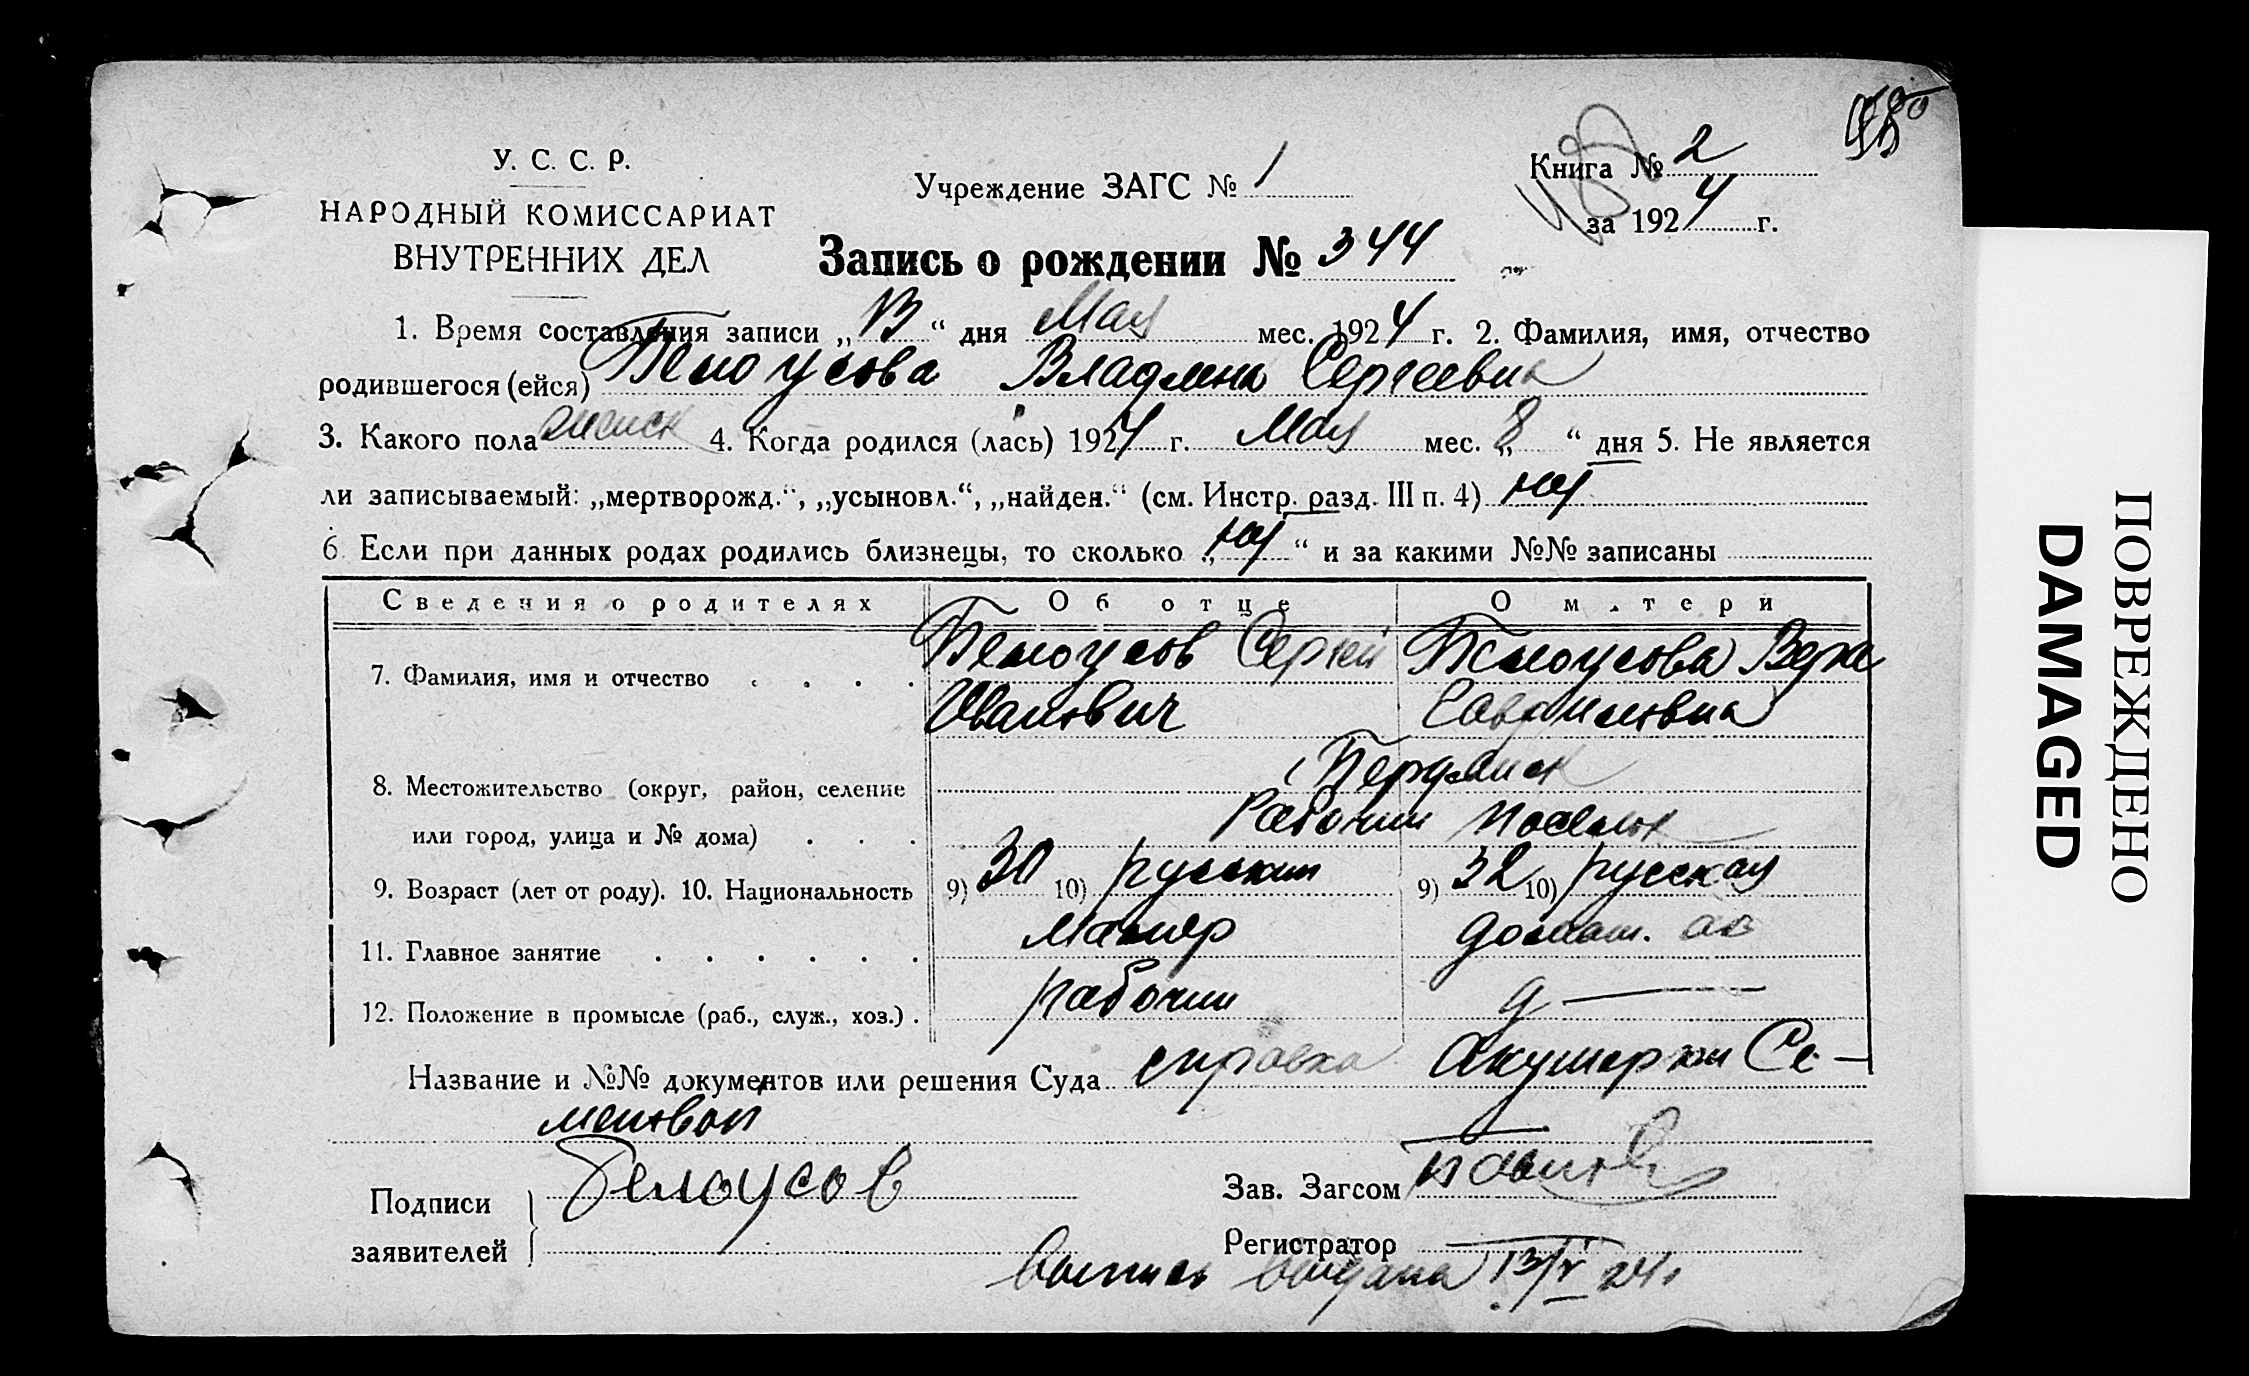 У. С. С. Р.
НАРОДНЫЙ КОМИССАРИАТ
ВНУТРЕННИХ ДЕЛ
Учреждение ЗАГС № 1
Книга № 2
за 1924 г.
Запись о рождении № 344
1. Время составления записи „13“ дня Мая мес. 1924 г. 2. Фамилия, имя, отчество
родившегося (ейся) Белоусова Владлена Сергеевна
3. Какого пола женск 4. Когда родился (лась) 1924 г. Мая мес. „8“ дня 5. Не является
ли записываемый: „мертворожд.“, „усыновл.“, „найден.“ (см. Инстр. разд. III п. 4) нет
6 Если при данных родах родились близнецы, то сколько „нет“ и за какими №№ записаны
Сведения о родителях Об отце О м.тери
7. Фамилия, имя и отчество . . . . Белоусов Сергей Белоусова Вера
Иванович Гавриловна
8. Местожительство (округ, район, селение Бердянск
или город, улица и № дома) . . . Рабочий поселок
9. Возраст (лет от роду). 10. Национальность 9) 30 10) русский 9) 32 10) русская
11. Главное занятие . . . . . . маляр домаш. хоз
12. Положение в промысле (раб., служ., хоз.) . рабочий
Название и №№ документов или решения Суда справка Акушерки Се-
меновой
Подписи
заявителей
Белоусов
Зав. Загсом
Регистратор
выпись выдана 13/V 24г
ПОВРЕЖДЕНО
DAMAGED